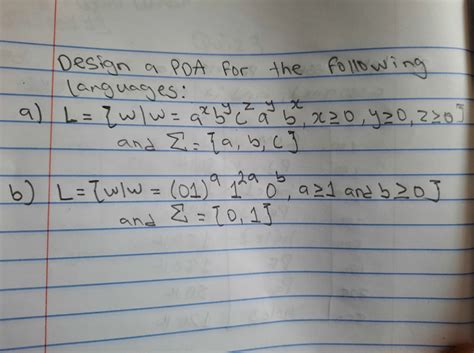 Design a PDA for the following
languages:
a) L = {w|w = aˣbʸcᶻaʸbˣ, x≥0, y≥0, z≥0}
and Σ = {a, b, c}
b) L = {w|w = (01)ᵃ 1²ᵃ 0ᵇ, a≥1 and b≥0}
and Σ = {0, 1}